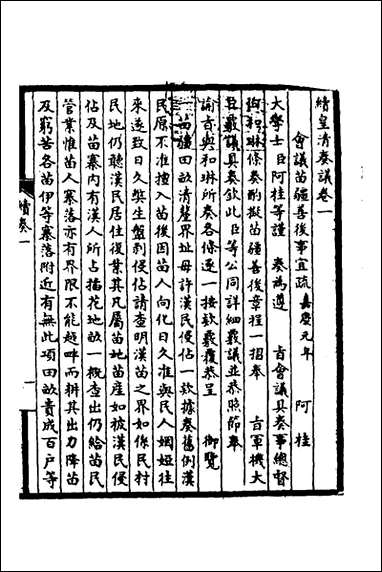 續皇清奏議卷一
會議苗疆善後事宜疏 嘉慶元年 阿桂
大學士臣阿桂等謹 奏為遵 旨會議具奏事總督
臣和琳條奏酌擬苗疆善後章程一摺奉 旨軍機大
臣覈議具奏欽此臣等公同詳細覈議並恭照節奉
諭旨與和琳所奏各條逐一按款覈覆恭呈 御覽
一苗疆田畝清釐界址毋許漢民侵佔一款據奏舊例漢
民原不准擅入苗後因苗人向化日久准與民人姻婭往
來遂致日久弊生盤剝侵佔請查明漢苗之界如係民村
民地仍聽漢民居住復業其凡屬苗地苗產如被漢民侵
佔及苗寨內有漢人所占插花地畝一概查出仍給苗民
管業惟苗人寨落亦有界限不能越畔而耕其出力降苗
及窮苦各苗伊等寨落附近有無此項田畝責成百戶等
續奏一
一